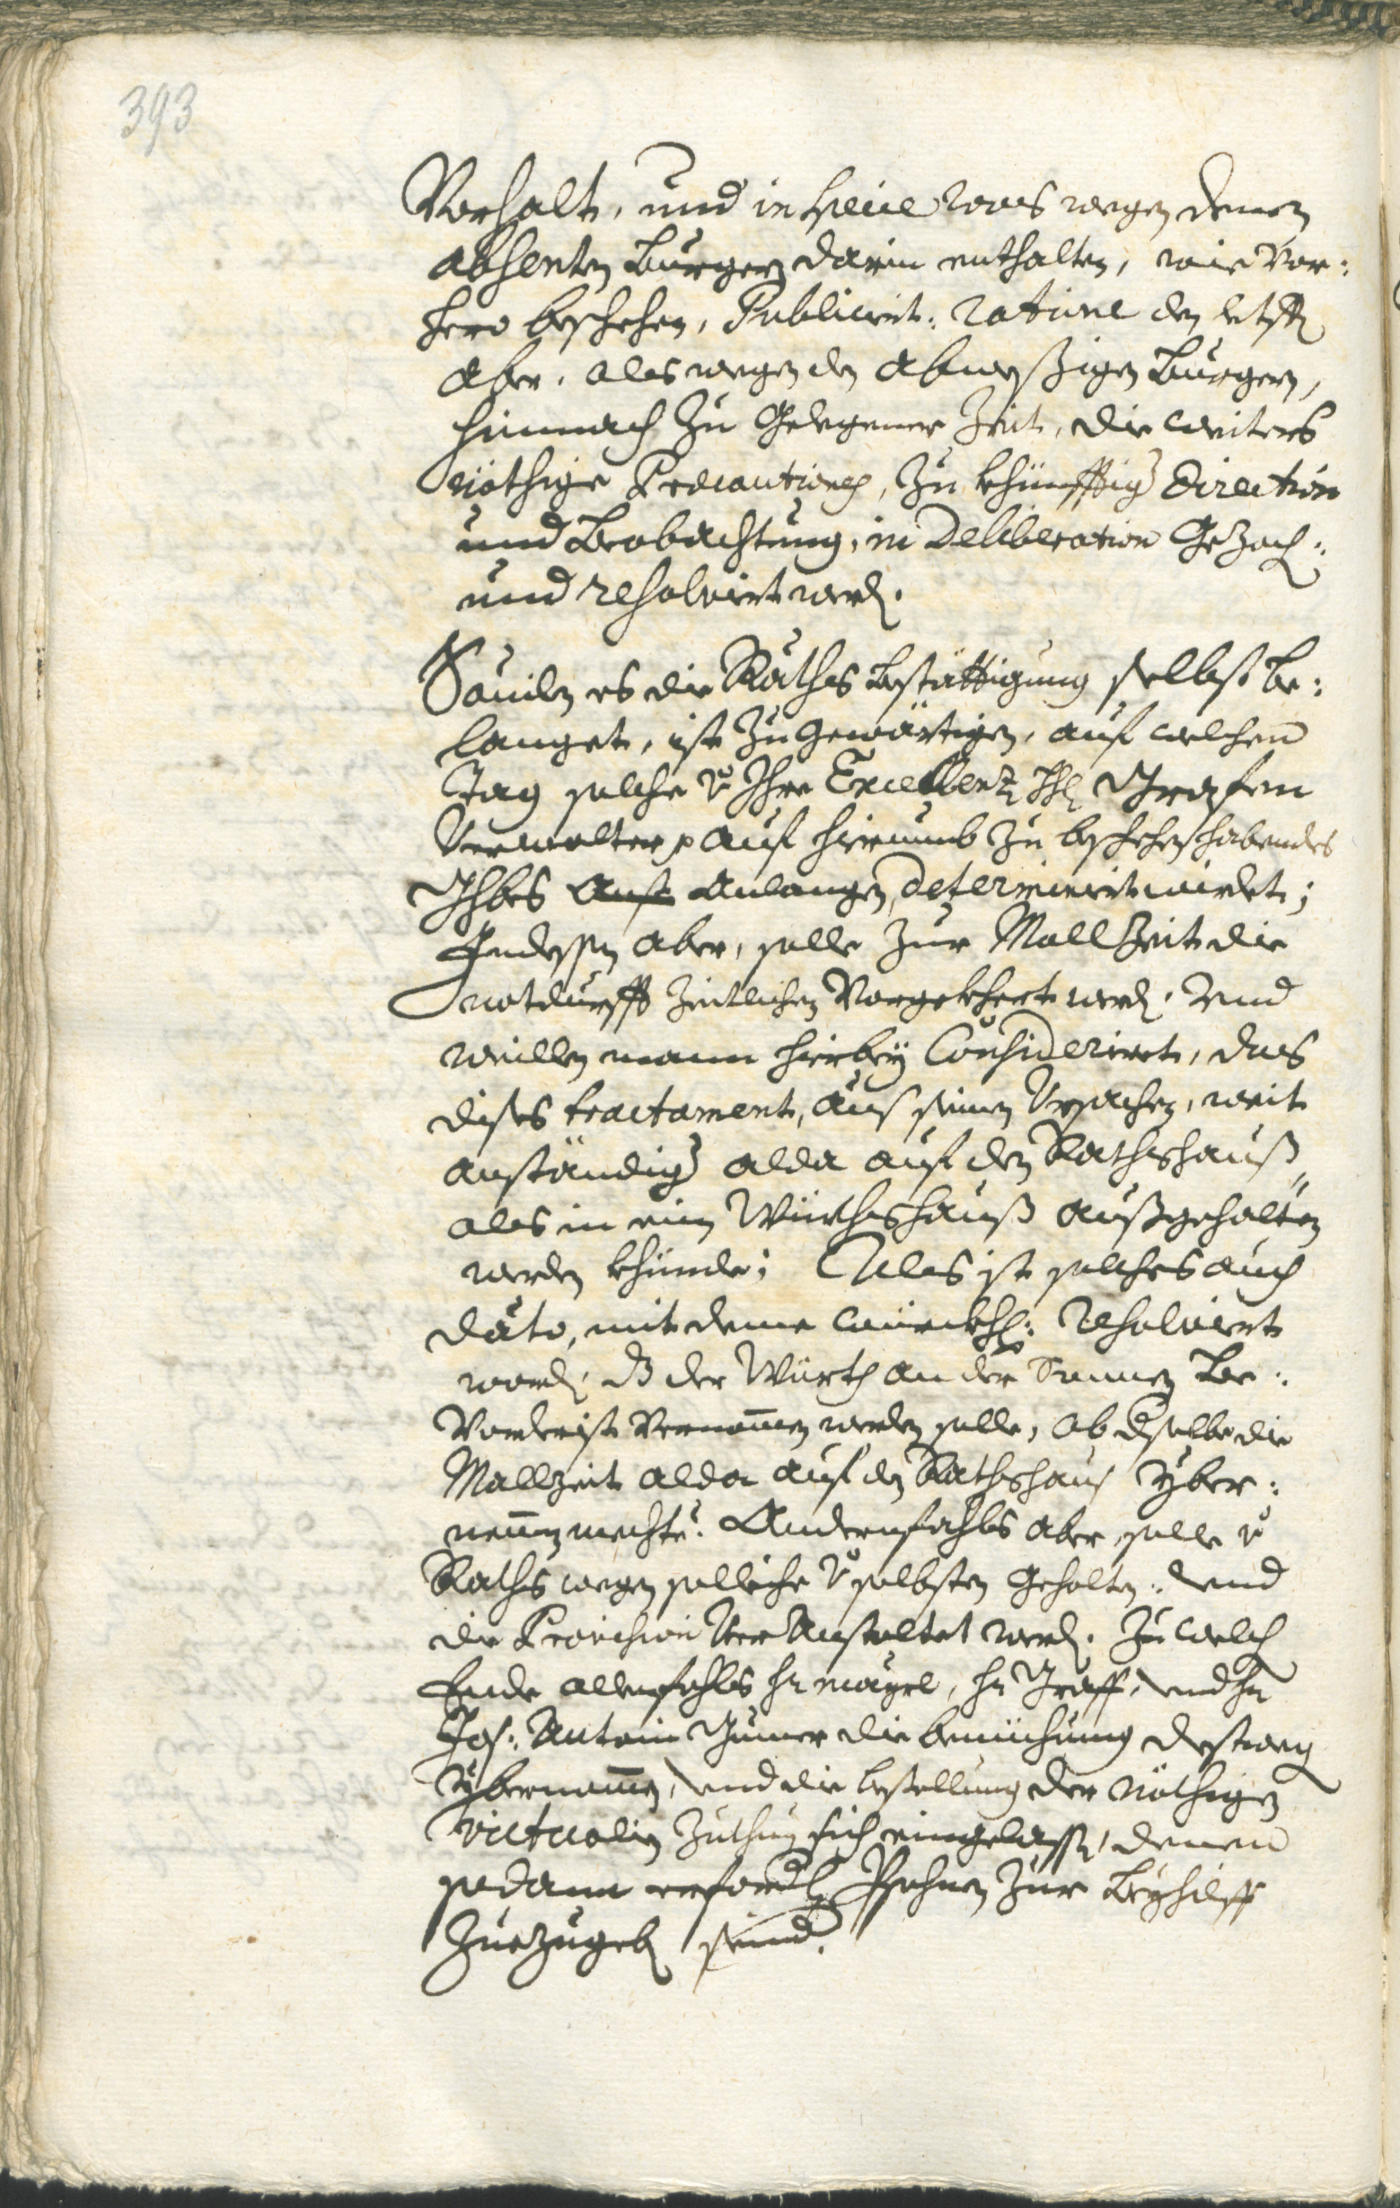 393
Vorhalt, und in specie was wegen denen
absenten Burgern darin enthalten, wie Vor:
hero beschehen, Publiciert: ratione der letsten
aber, als wegen der abweßigen Burgern,
hinnach zu Gelegener Zeit, die weiters
nöthige Precautionen, zu khünfftig Direction
und Beobachtung, in Deliberation Gezoch:
und resolviert werden.
Souilen es die Raths bestättigung selbst be:
langet, ist zu Gewärtigen, auf welchen
Tag solche v Ihre Excellenz
Verwalter auf hierumb zu beschehen habendes
anlangen, determiniert wirdet;
Indessen aber, solle zur Mallzeit die
notdurfft zeitlichen Vorgekhert werden. Und
weillen mann hierbey Consideriert, das
dises tractament, aus seinen Ursachen, weit
anständig alda auf den Rathshauß
als in ein Würthshauß außgehalten
werden khünde; Als ist solches auch
dato, mit deme würckhl: resolviert
worden, dz der Würth an der Sonnen be:
Vorderist Vernommen werden solle, ob dselbe die
Mallzeit alda auf den Rathshaus yber:
nemmen mechte. Andernfahls aber solle v
Raths wegen solliche selbsten Gehalten: und
die Provision Veranstaltet werden. Zu welch
Ende allenfahls hr Mayrl, hr Graff, und hr
Jos: Antoni die bemüehung destweg
Ybernommen, und die bestellung der nöthigen
victualien zuthuen sich eingelassen, denen
sodann erforderl Persohnen zur Beyhilff
zuezugeben seind.